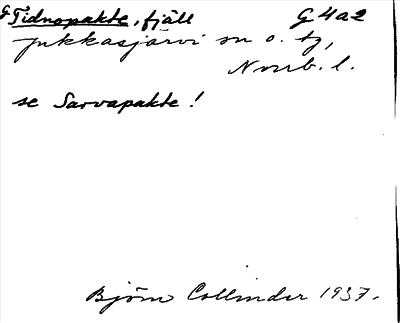 G Tidnopakte, fjäll G 4 a 2
Jukkasjärvi sn o. tg,
Norrb. l.
se Sarvapakte !
Björn Collinder 1937.